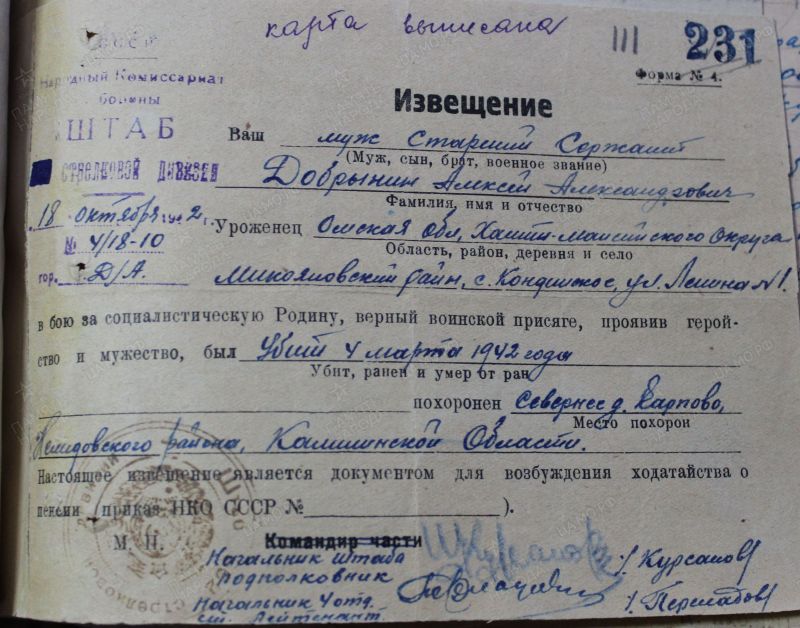 карта выписана
III 231
СССР
Народный Комиссариат обороны
Форма № 4.
ШТАБ
СТРЕЛКОВОЙ ДИВИЗИИ
18 октября 1942 г.
№ 4/18-10
гор. Д/А.
Извещение
Ваш муж Старший Сержант
(Муж, сын, брат, военное звание)
Добрынин Алексей Александрович
Фамилия, имя и отчество
Уроженец Омская обл, Ханты-Мансийского Округа
Область, район, деревня и село
Микояновский район, с. Кондинское, ул. Ленина №1.
в бою за социалистическую Родину, верный воинской присяге, проявив герой-
ство и мужество, был Убит 4 марта 1942 годы
Убит, ранен и умер от ран
похоронен Севернее д. Карпово,
Место похорон
Нелидовского района, Калининской Области.
Настоящее извещение является документом для возбуждения ходатайства о
пенсии приказ НКО СССР № ).
М. П. Командир части
Начальник штаба
Подполковник /Курсанов/
Начальник 4 отд.
ст. Лейтенант